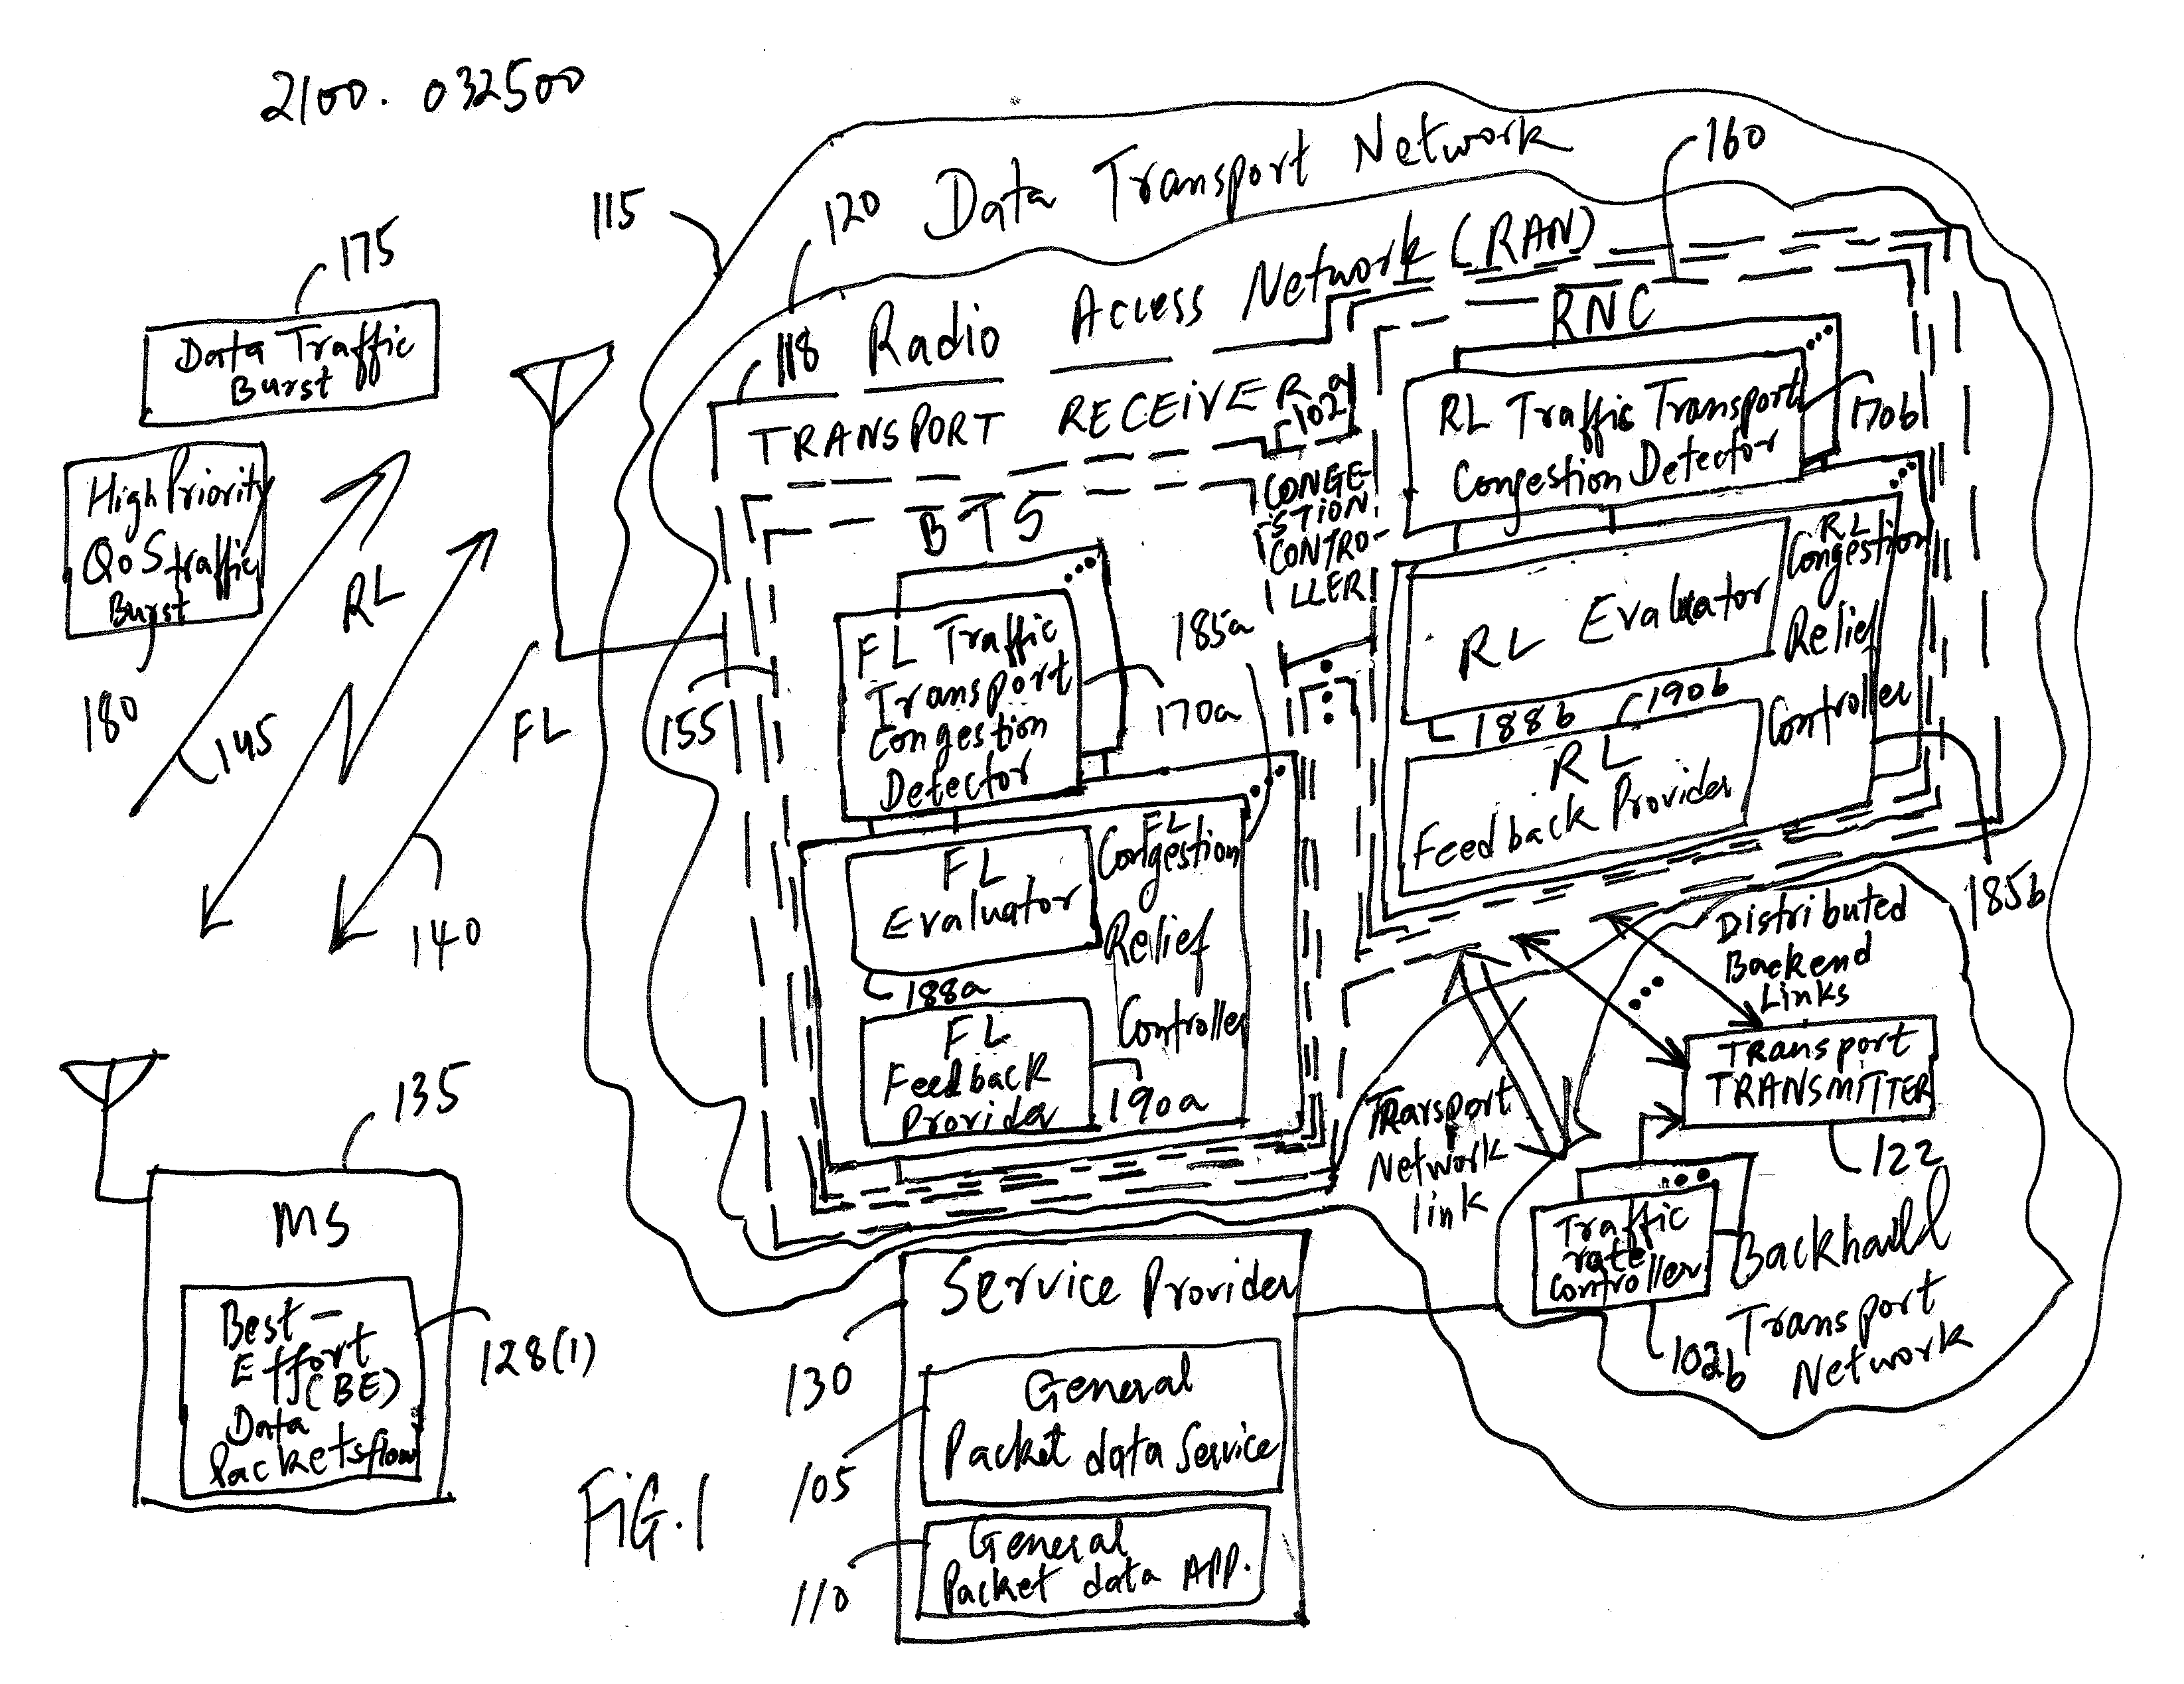 2100.032500
Data Transport Network
160
115
120
175
Data Traffic
Burst
Radio Access Network (RAN)
118
TRANSPORT RECEIVER
102a
CONGE-
STION
CONTRO-
LLER
RNC
RL Traffic Transport
Congestion Detector
170b
High Priority
QoS traffic
Burst
180
RL
145
FL
140
BTS
155
FL Traffic
Transport
Congestion
Detector
185a
170a
RL Evaluator
188b
190b
RL
Feedback Provider
RL
Congestion
Relief
Controller
185b
FL
Evaluator
188a
FL
Feedback
Provider
190a
FL
Congestion
Relief
Controller
Distributed
Backend
Links
Transport
TRANSMITTER
122
Transport
Network
link
Traffic
rate
Controller
102b
Backhaul
Transport
Network
135
MS
Best-
Effort
(BE)
Data
Packets flow
128(1)
Service Provider
130
General
Packet data Service
105
General
Packet data APP.
110
FIG.1